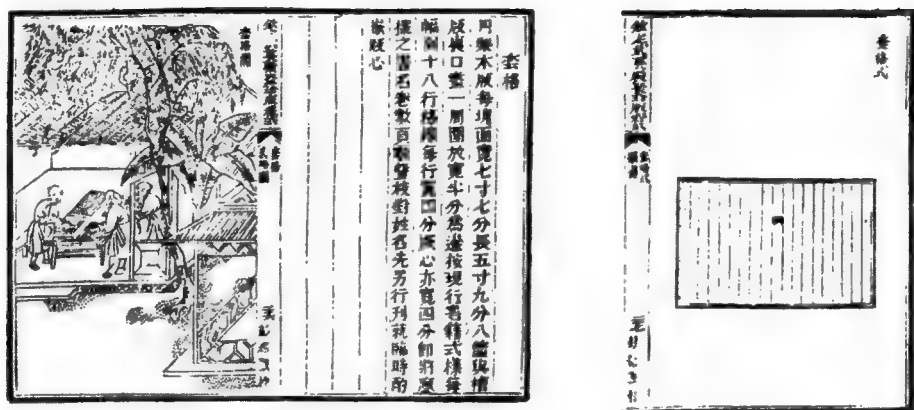 套格
用梨木版每塊面寬七寸七分長五寸九分八釐與槽
版裏口畫一周圍放寬半分為邊按現行書籍式樣每
幅刻十八行格線每行寬四分版心亦寬四分即將應
擺之書名卷數頁數暨校對姓名先另行刊就臨時酌
嵌版心
套格圖
套格式